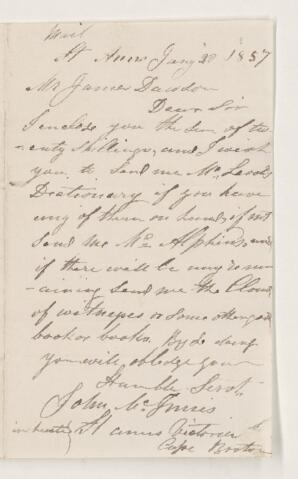 Mail
St Anns Jany 28 1857
Mr James Dawson
Dear Sir
I enclose you the sum of tw-
-enty Shillings, and I wish
you to send me Mc
Dictionary if you have
any of them on hand, if not
send me Mc Alphins, and
if there will be any rem-
-aining send me the Cloud
of witnesses or some other good
book or books. By so doing
you will obledge your
Humble Servt
John Mc Innis
St Anns Victoria
Cape Breton